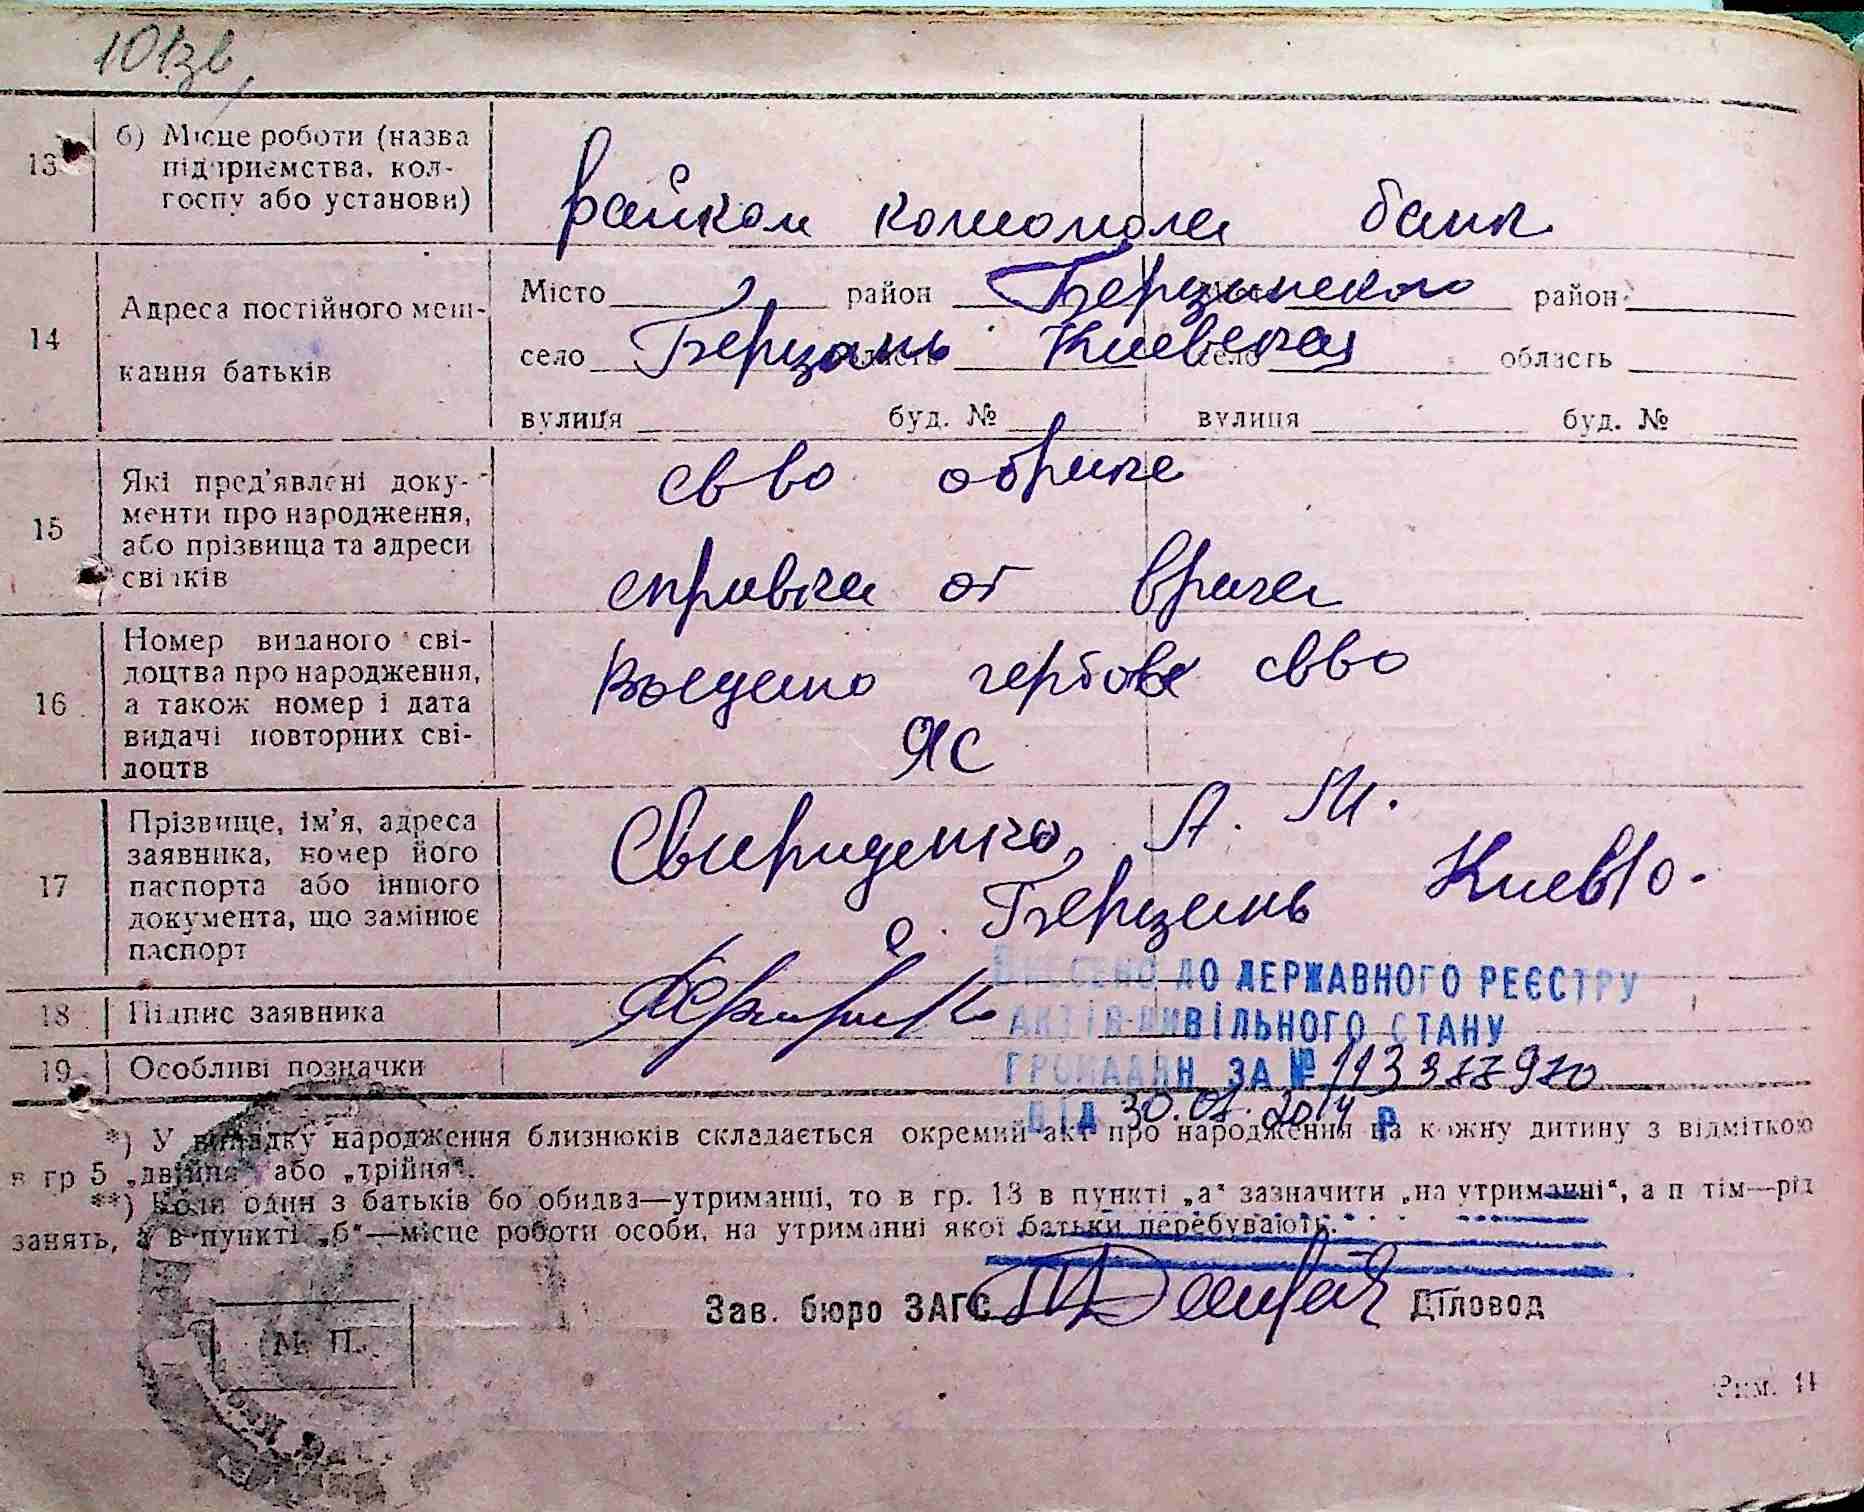 101зв
13 б) Місце роботи (назва
підприємства, кол-
госпу або установи)
райком комсомола банк
14 Адреса постійного меш-
кання батьків
Місто район Березанского район
село Березань область Киевская село область
вулиця буд. № вулиця буд. №
15 Які пред'явлені доку-
менти про народження,
або прізвища та адреси
свідків
св во о браке
справка от врача
16 Номер виданого сві-
доцтва про народження,
а також номер і дата
видачі повторних сві-
доцтв
Выдано гербове свво
ЯС
17 Прізвище, ім'я, адреса
заявника, номер його
паспорта або іншого
документа, що замінює
паспорт
Свириденко А. М.
с. Березань Киев/о.
18 Підпис заявника
19 Особливі позначки
ВНЕСЕНО ДО ДЕРЖАВНОГО РЕЄСТРУ
АКТІВ ЦИВІЛЬНОГО СТАНУ
ГРОМАДЯН ЗА №
ВІД 2014 р
*) У випадку народження близнюків складається окремий акт про народження на кожну дитину з відміткою
в гр 5 „двійня" або „трійня".
**) Коли один з батьків бо обидва—утриманці, то в гр. 13 в пункті „а" зазначити „на утриманні", а п тім—рід
занять, а в пункті „б"—місце роботи особи, на утриманні якої батьки перебувають.
Зав. бюро ЗАГС Діловод
М. П.
Зим. 14